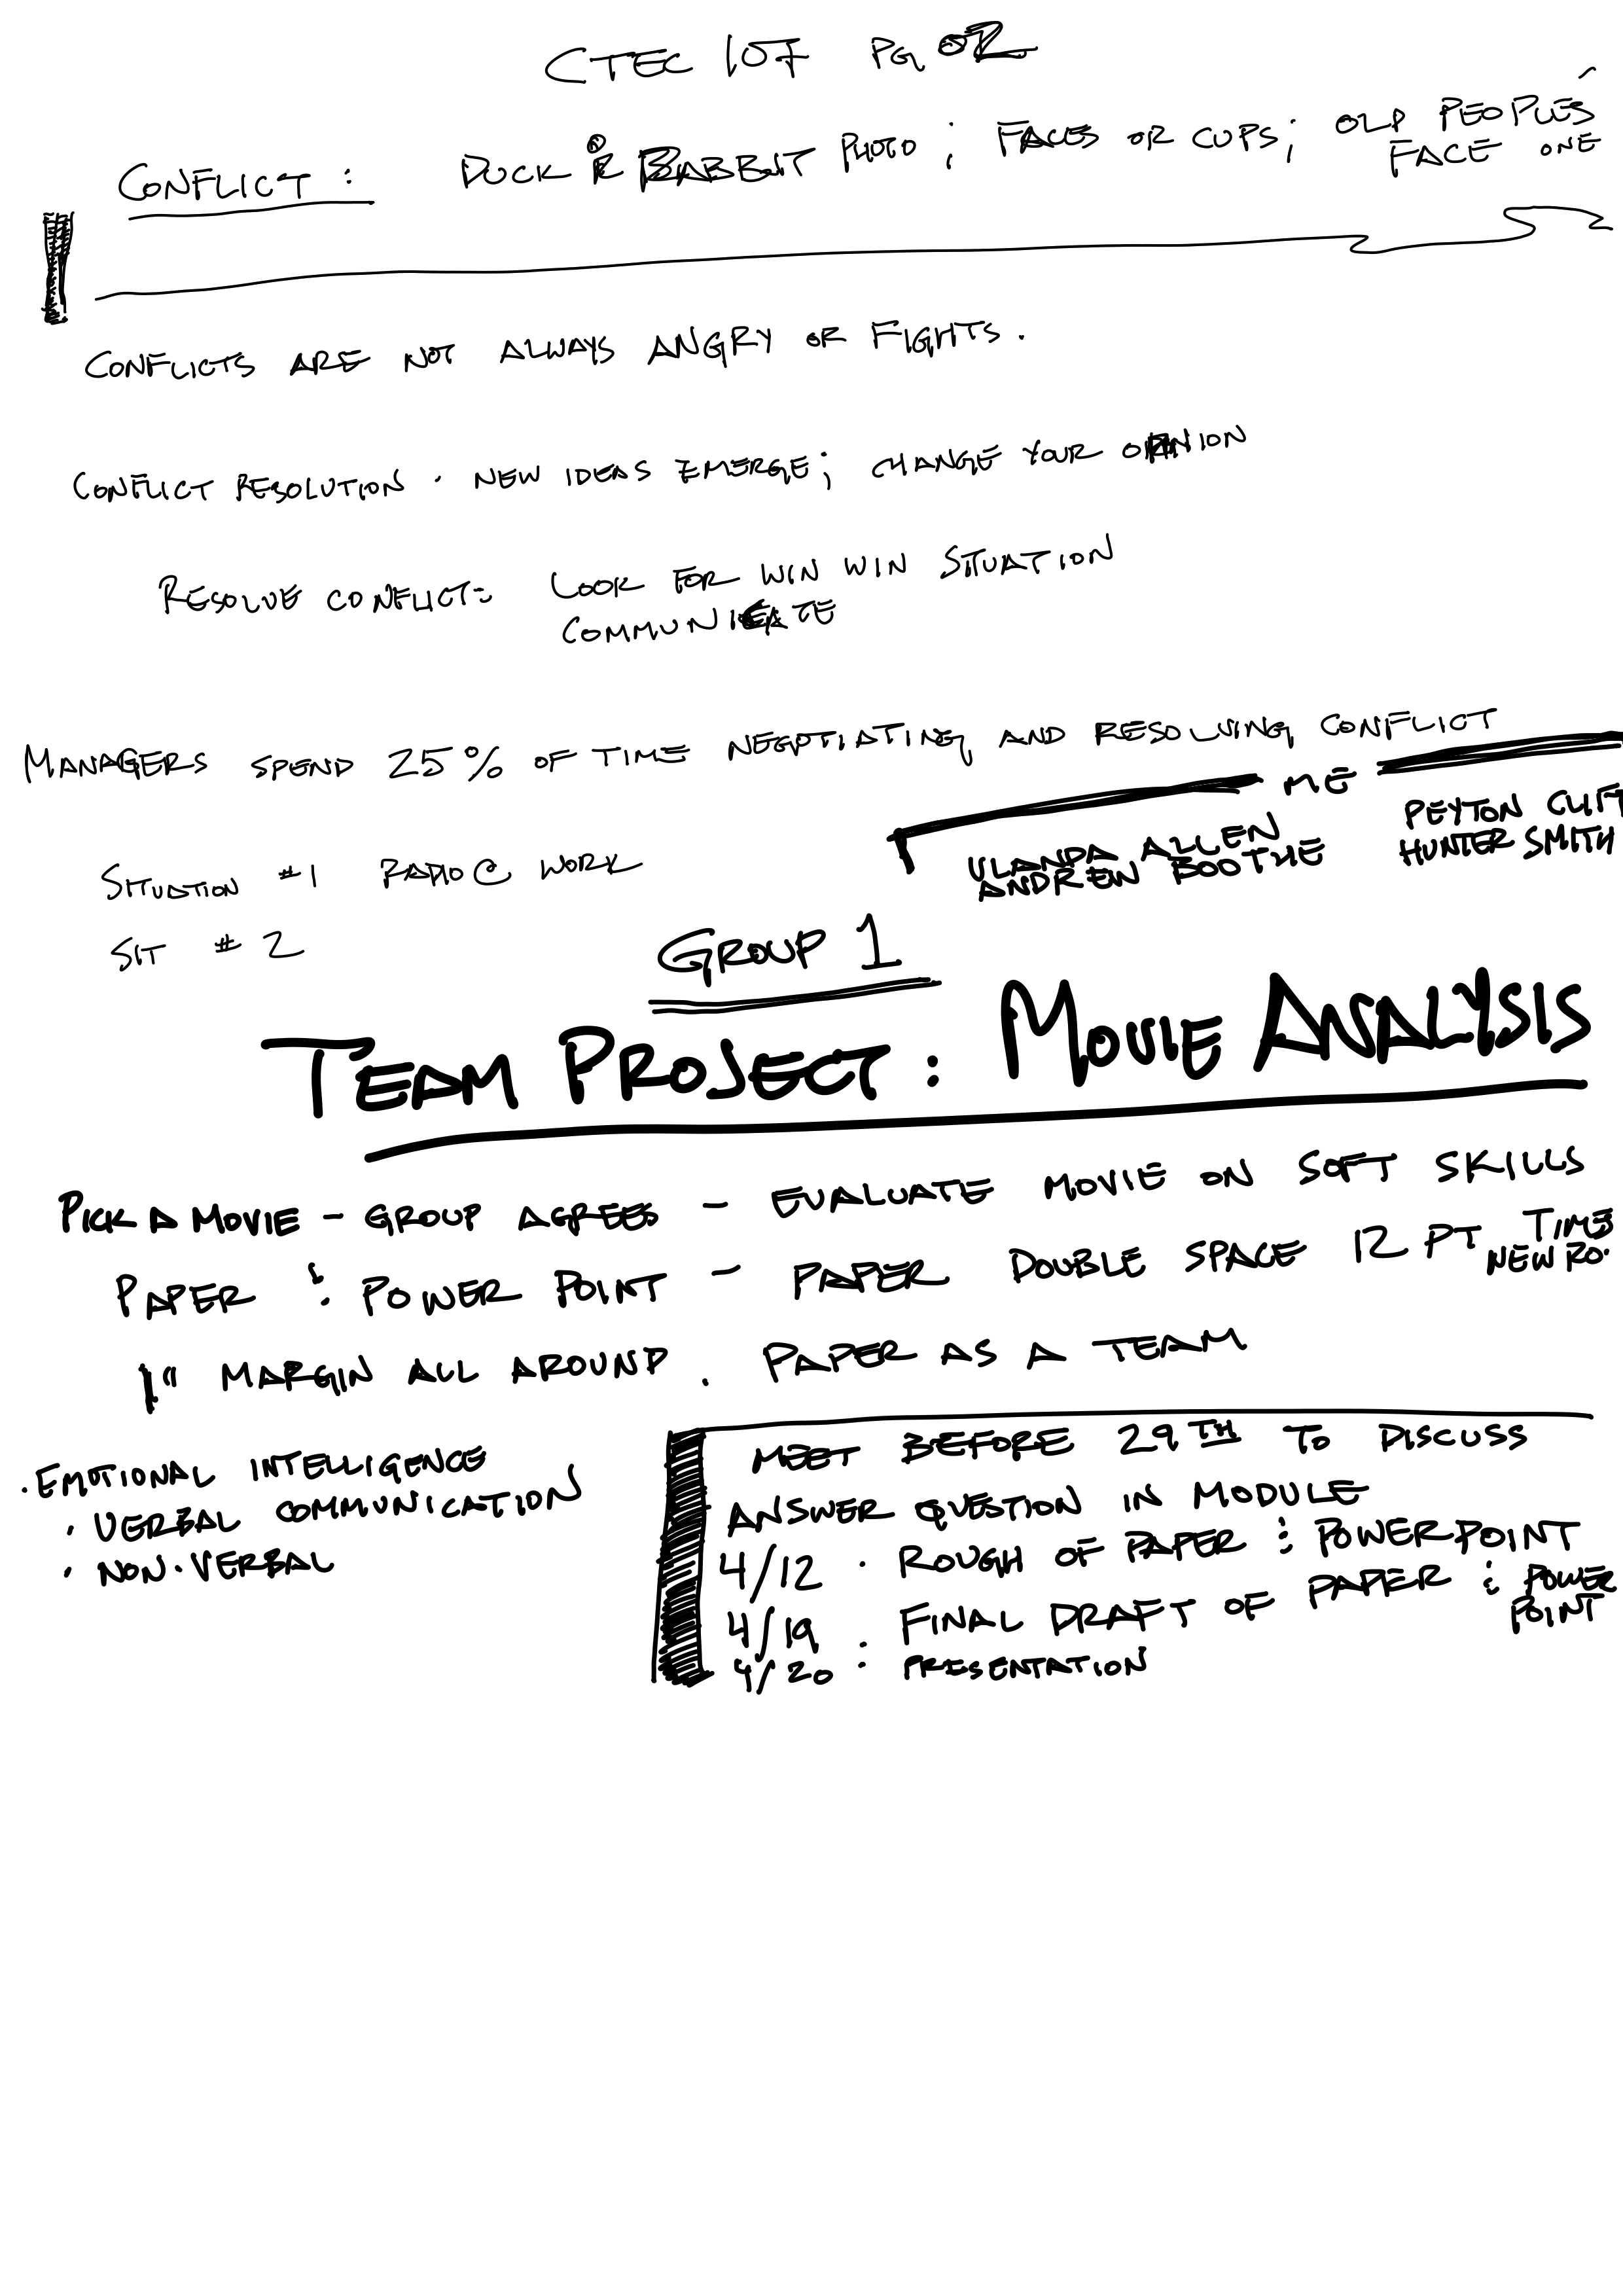 CTEC 107 PG 02
CONFLICT: DUCK & RABBIT PHOTO; FACES OR CUPS; OLD PEOPLE'S
FACE ONE
CONFLICTS ARE NOT ALWAYS ANGRY OR FIGHTS.
CONFLICT RESOLUTION · NEW IDEAS EMERGE; CHANGE YOUR OPINION
RESOLVE CONFLICT: LOOK FOR WIN WIN SITUATION
COMMUNICATE
MANAGERS SPEND 25% OF TIME NEGOTIATING AND RESOLVING CONFLICT
ME
ULANDA ALLEN PEYTON CLIFT
ANDREW BOOTHE HUNTER SMITH
SITUATION #1 RADIO @ WORK
SIT #2
GROUP 1
TEAM PROJECT: MOVIE ANALYSIS
PICK A MOVIE - GROUP AGREES - EVALUATE MOVIE ON SOFT SKILLS
PAPER & POWER POINT - PAPER DOUBLE SPACE 12 PT TIMES
NEW RO.
1" MARGIN ALL AROUND. PAPER AS A TEAM
· EMOTIONAL INTELLIGENCE
· VERBAL COMMUNICATION
· NON-VERBAL
MEET BEFORE 29TH TO DISCUSS
ANSWER QUESTION IN MODULE
4/12 · ROUGH OF PAPER & POWERPOINT
4/19 : FINAL DRAFT OF PAPER & POWER
POINT
4/20 : PRESENTATION